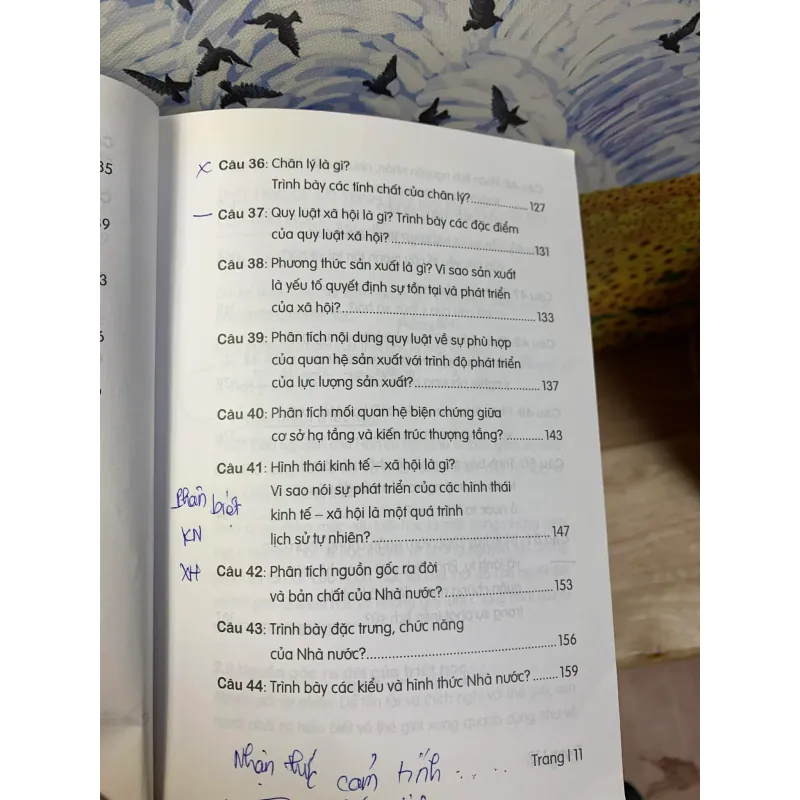 35
39
3
x Câu 36: Chân lý là gì?
Trình bày các tính chất của chân lý?....................127
— Câu 37: Quy luật xã hội là gì? Trình bày các đặc điểm
của quy luật xã hội?................................131
Câu 38: Phương thức sản xuất là gì? Vì sao sản xuất
là yếu tố quyết định sự tồn tại và phát triển
của xã hội?............................................133
Câu 39: Phân tích nội dung quy luật về sự phù hợp
của quan hệ sản xuất với trình độ phát triển
của lực lượng sản xuất?............................137
Câu 40: Phân tích mối quan hệ biện chứng giữa
cơ sở hạ tầng và kiến trúc thượng tầng? ...........143
Câu 41: Hình thái kinh tế – xã hội là gì?
Vì sao nói sự phát triển của các hình thái
kinh tế – xã hội là một quá trình
lịch sử tự nhiên?.......................................147
phân biệt
KN
XH
Câu 42: Phân tích nguồn gốc ra đời
và bản chất của Nhà nước? .......................153
Câu 43: Trình bày đặc trưng, chức năng
của Nhà nước?........................................156
Câu 44: Trình bày các kiểu và hình thức Nhà nước? .......159
Nhận thức cảm tính ....
Trang | 11